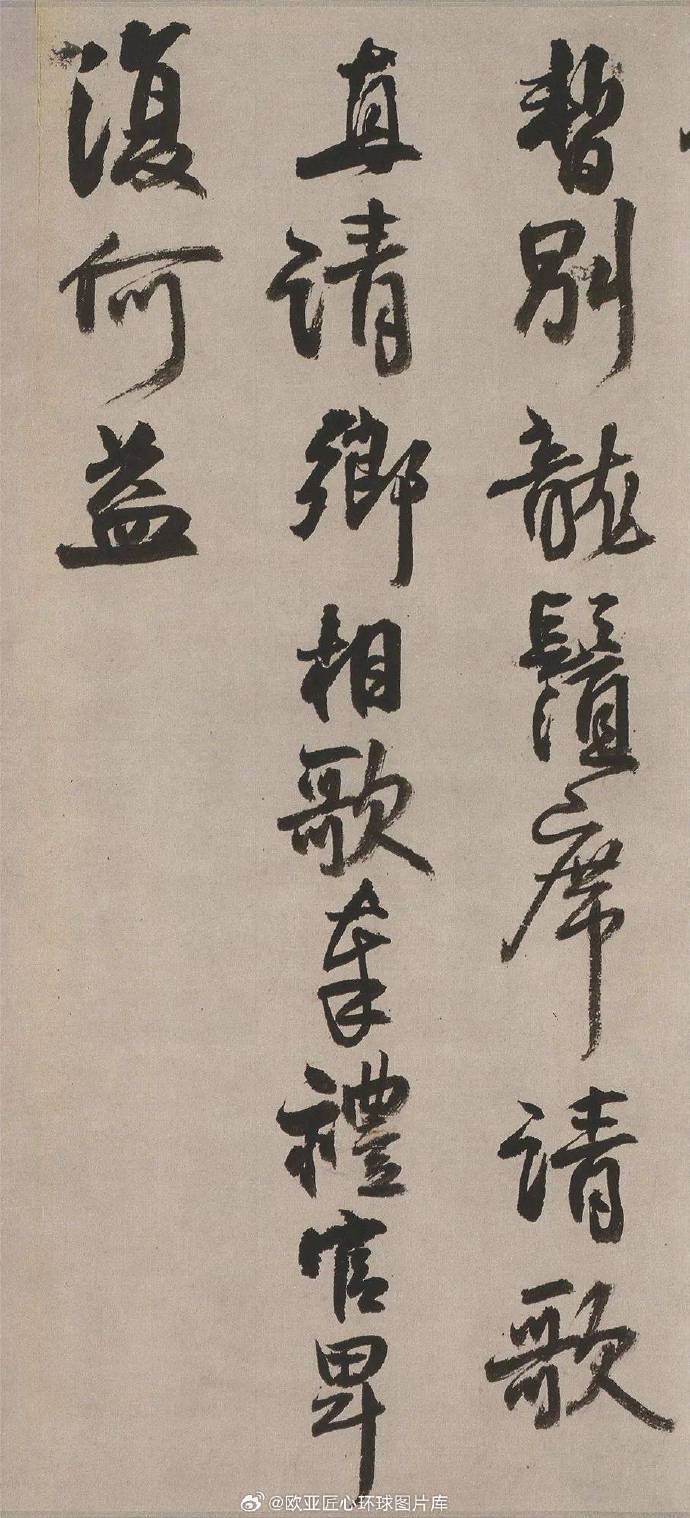 暫別龍鬚席請歌
直請卿相歌奉禮官卑
復何益
@欧亚匠心环球图片库